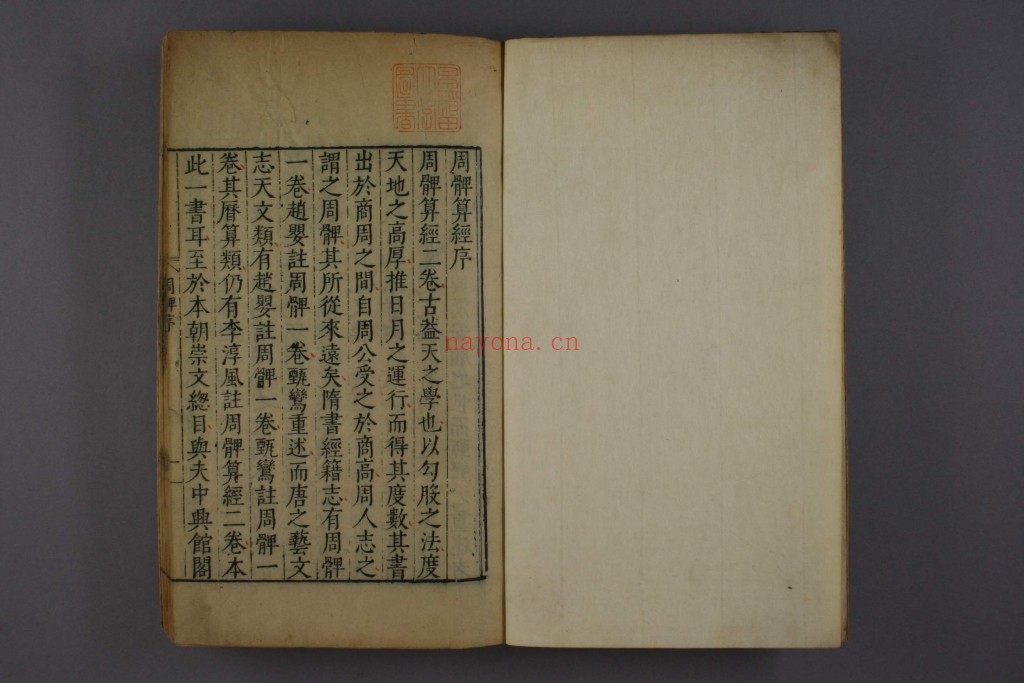 周髀算經序
周髀算經二卷古葢天之學也以勾股之法度
天地之高厚推日月之運行而得其度數其書
出於商周之間自周公受之於商高周人志之
謂之周髀其所從來遠矣隋書經籍志有周髀
一卷趙嬰註周髀一卷甄鸞重述而唐之藝文
志天文類有趙嬰註周髀一卷甄鸞註周髀一
卷其曆算類仍有李淳風註周髀算經二卷本
此一書耳至於本朝崇文總目與夫中興館閣
周髀序
一
nayona.cn